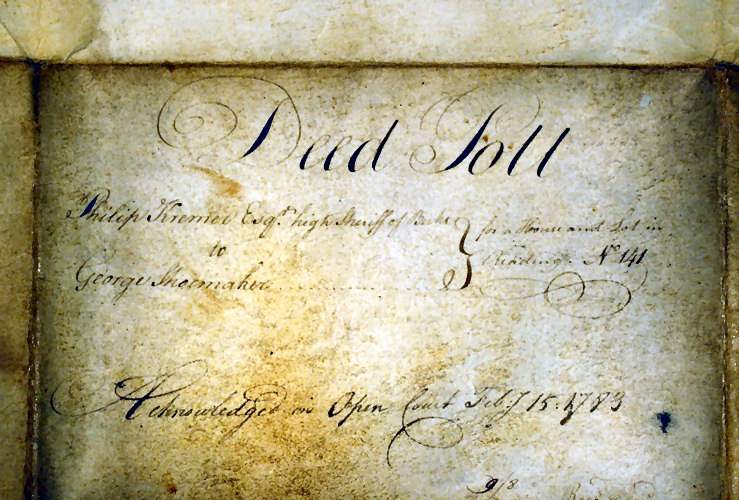 Deed Poll
Philip Kremer Esqr. high Sheriff of Berks
to
George Shoemaker
for a House and Lot in
Reading No. 141
Acknowledged in Open Court Feby 15. 1783
9/8